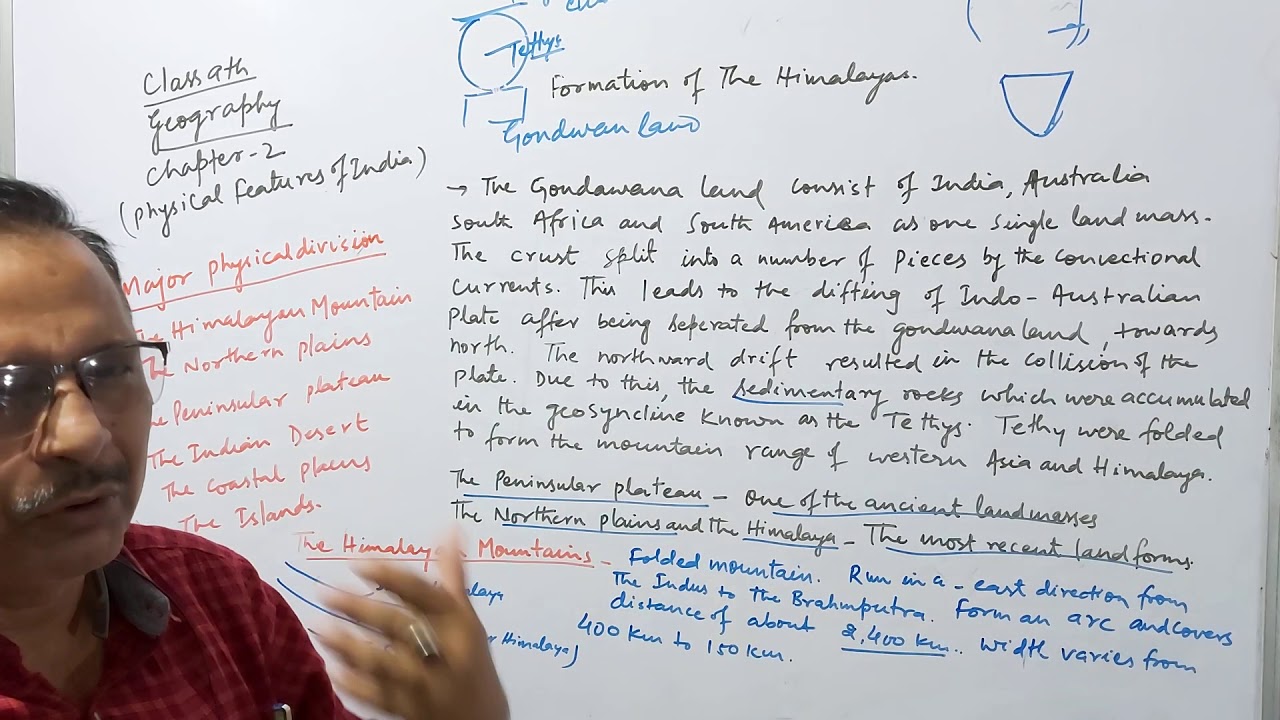 Tethys
Formation of The Himalayas.
Gondwan land
Class 9th
Geography
Chapter-2
(physical Features of India)
Major physical division
The Himalayan Mountain
The Northern plains
Peninsular plateau
The Indian Desert
The Coastal plains
The Islands.
→ The Gondawana land consist of India, Australia
South Africa and South America as one single land mass.
The crust split into a number of pieces by the convectional
currents. This leads to the difting of Indo-Australian
plate after being seperated from the gondwana land, towards
north. The northward drift resulted in the collision of the
plate. Due to this, the sedimentary rocks which were accumulated
in the geosyncline known as the Tethys. Tethy were folded
to form the mountain range of western Asia and Himalaya.
The Peninsular plateau - one of the ancient landmasses
The Northern plains and the Himalaya - The most recent landforms.
The Himalayan Mountains - Folded mountain. Run in a - east direction from
The Indus to the Brahmputra. Form an arc and covers
distance of about 2,400 km. width varies from
400 km to 150 km.
Himalaya)